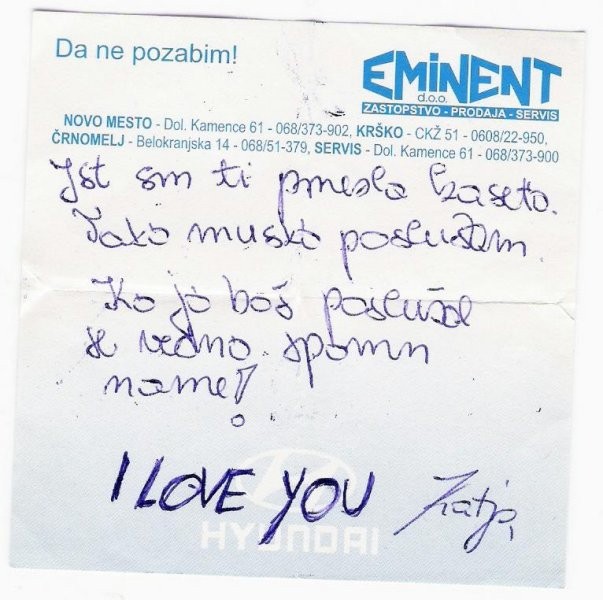 Da ne pozabim!
EMINENT
d.o.o.
ZASTOPSTVO - PRODAJA - SERVIS
NOVO MESTO - Dol. Kamence 61 - 068/373-902, KRŠKO - CKŽ 51 - 0608/22-950,
ČRNOMELJ - Belokranjska 14 - 068/51-379, SERVIS - Dol. Kamence 61 - 068/373-900
Jst sm ti prnesla kaseto.
Tako musko poslušam.
Ko jo boš poslušal
se vedno spomn
name!
I LOVE YOU Katja
HYUNDAI